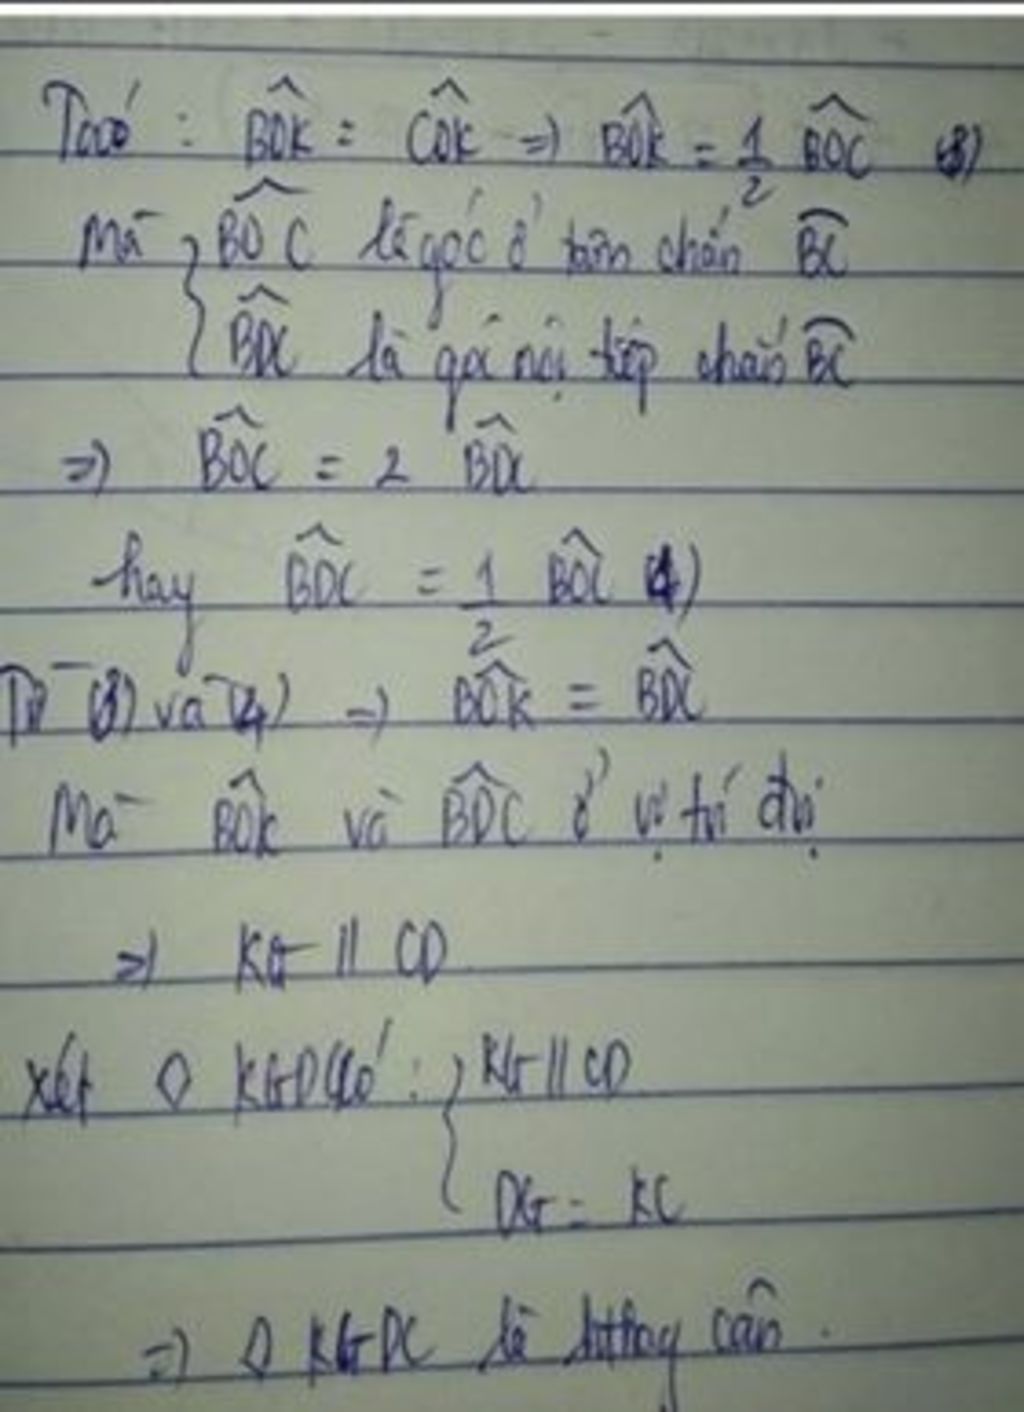 Ta có : \widehat{BOK} = \widehat{COK} => \widehat{BOK} = \frac{1}{2} \widehat{BOC} (3)
Mà { \widehat{BOC} là góc ở tâm chắn \overset{\frown}{BC}
\widehat{BDC} là góc nội tiếp chắn \overset{\frown}{BC}
=> \widehat{BOC} = 2 \widehat{BDC}
hay \widehat{BDC} = \frac{1}{2} \widehat{BOC} (4)
Từ (3) và (4) => \widehat{BOK} = \widehat{BDC}
Mà \widehat{BOK} và \widehat{BDC} ở vị trí đvị
=> KG // CD
Xét ◇ KGDC có : { KG // CD
DG = KC
=> ◇ KGDC là hthang cân .